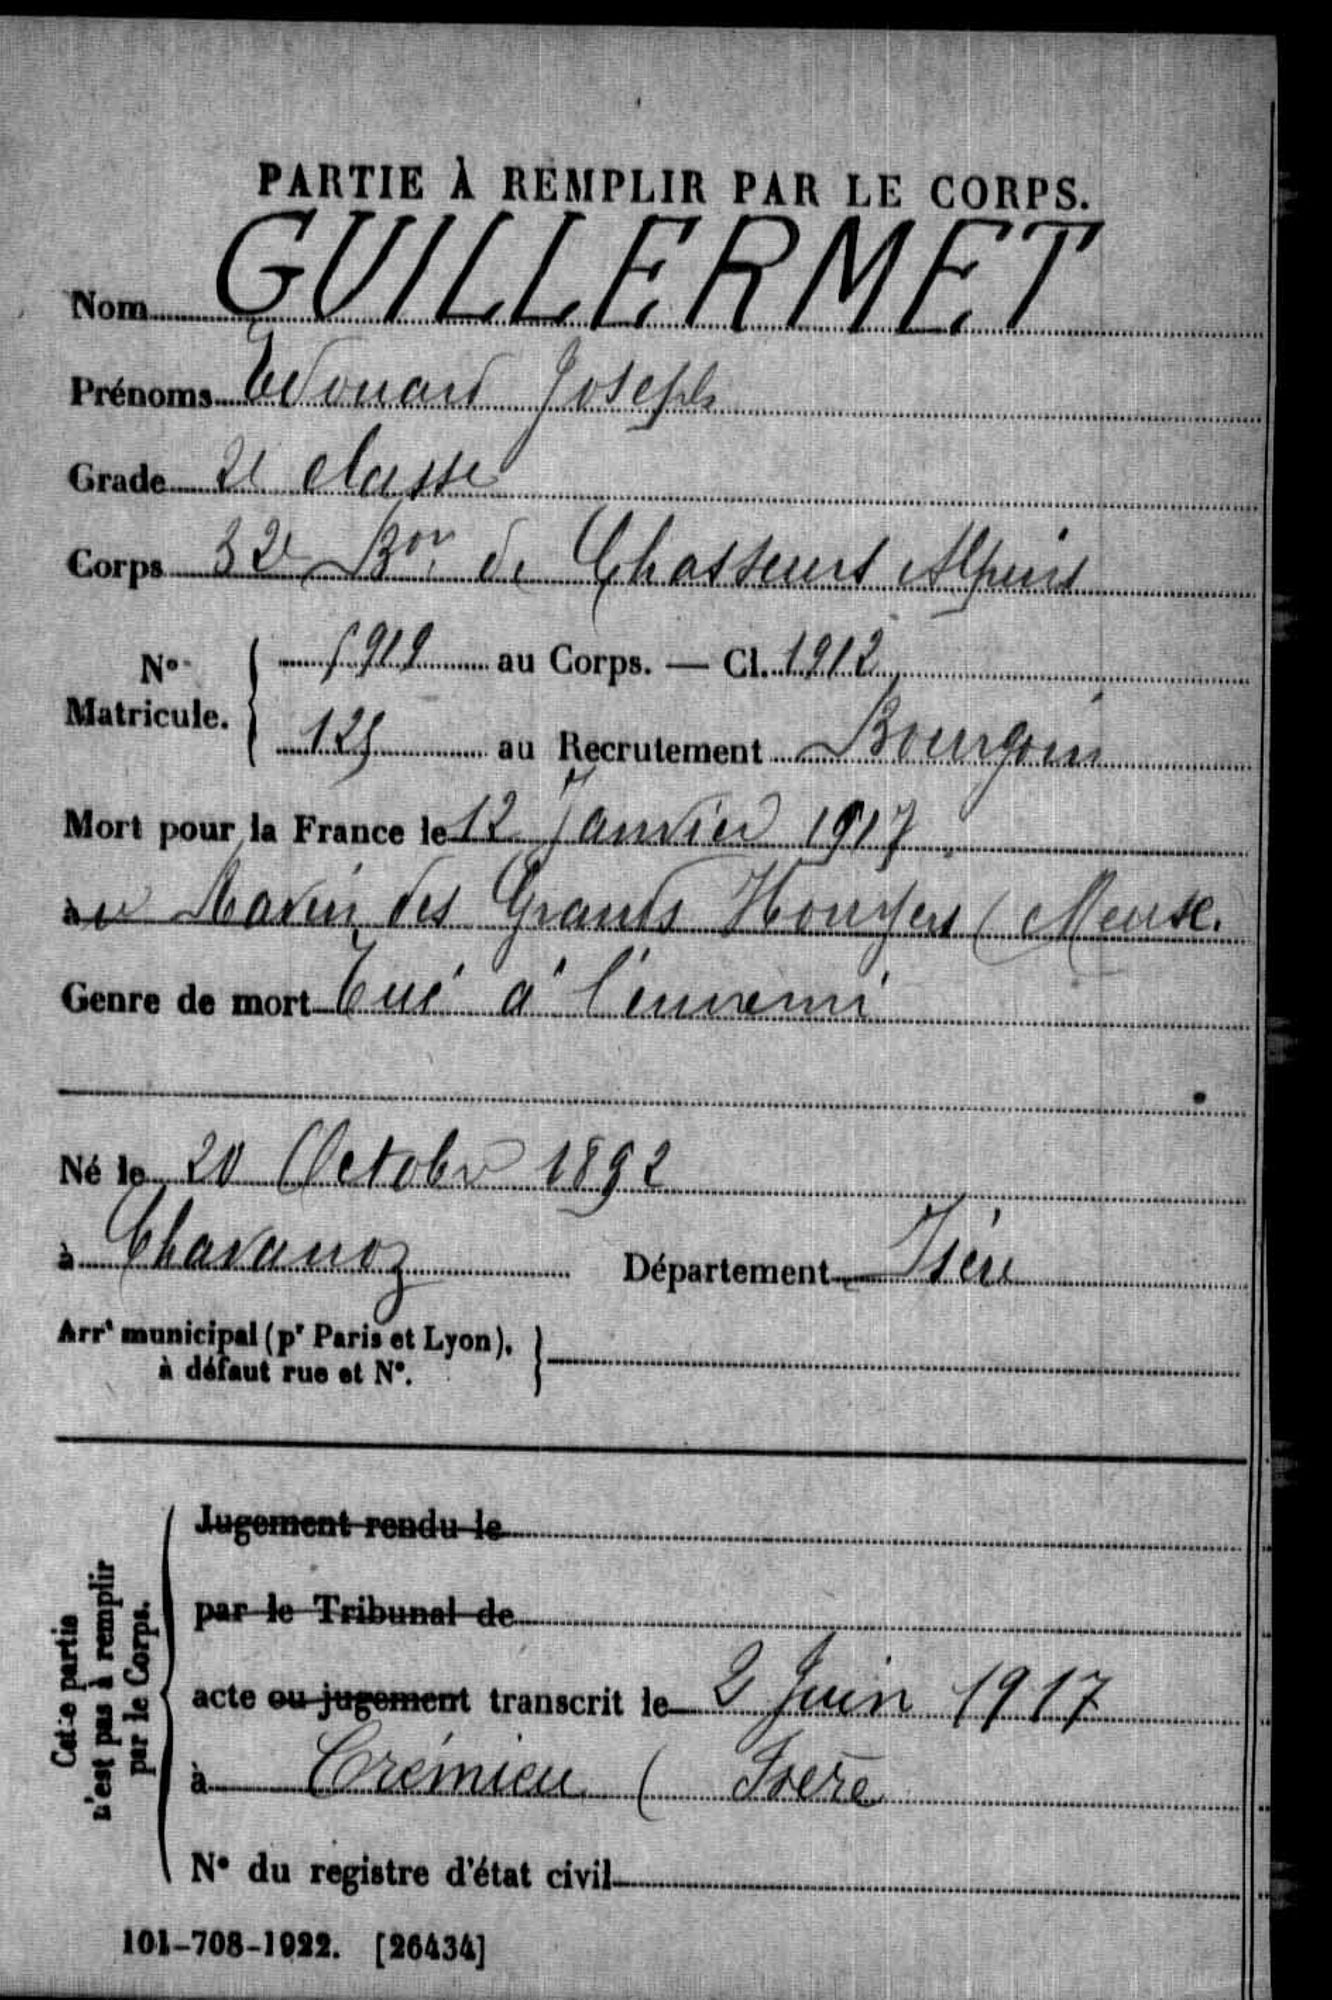 PARTIE À REMPLIR PAR LE CORPS.
Nom GUILLERMET
Prénoms Edouard Joseph
Grade 2e classe
Corps 32e Bon de Chasseurs Alpins
No Matricule. { 5919 au Corps. — Cl. 1912
125 au Recrutement Bourgoin
Mort pour la France le 12 Janvier 1917
au Ravin des Grands Houyers (Meuse.
Genre de mort Tué à l'ennemi
Né le 20 Octobre 1892
à Chavanoz Département Isère
Arrt municipal (pr Paris et Lyon), à défaut rue et No. }
Cette partie n'est pas à remplir par le Corps.
Jugement rendu le
par le Tribunal de
acte ou jugement transcrit le 2 Juin 1917
à Crémieu (Isère
No du registre d'état civil
101-708-1922. [26434]